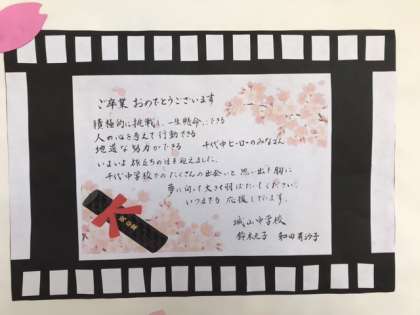 ご卒業 おめでとうございます
積極的に挑戦し、一生懸命にできる
人の心を考えて行動できる
地道な努力ができる 千代中ヒーローのみなさん
いよいよ旅立ちの時を迎えました。
千代中学校でのたくさんの出会いと思い出を胸に
夢に向って大きく羽ばたいてください。
いつまでも応援しています。
城山中学校
鈴木 和田